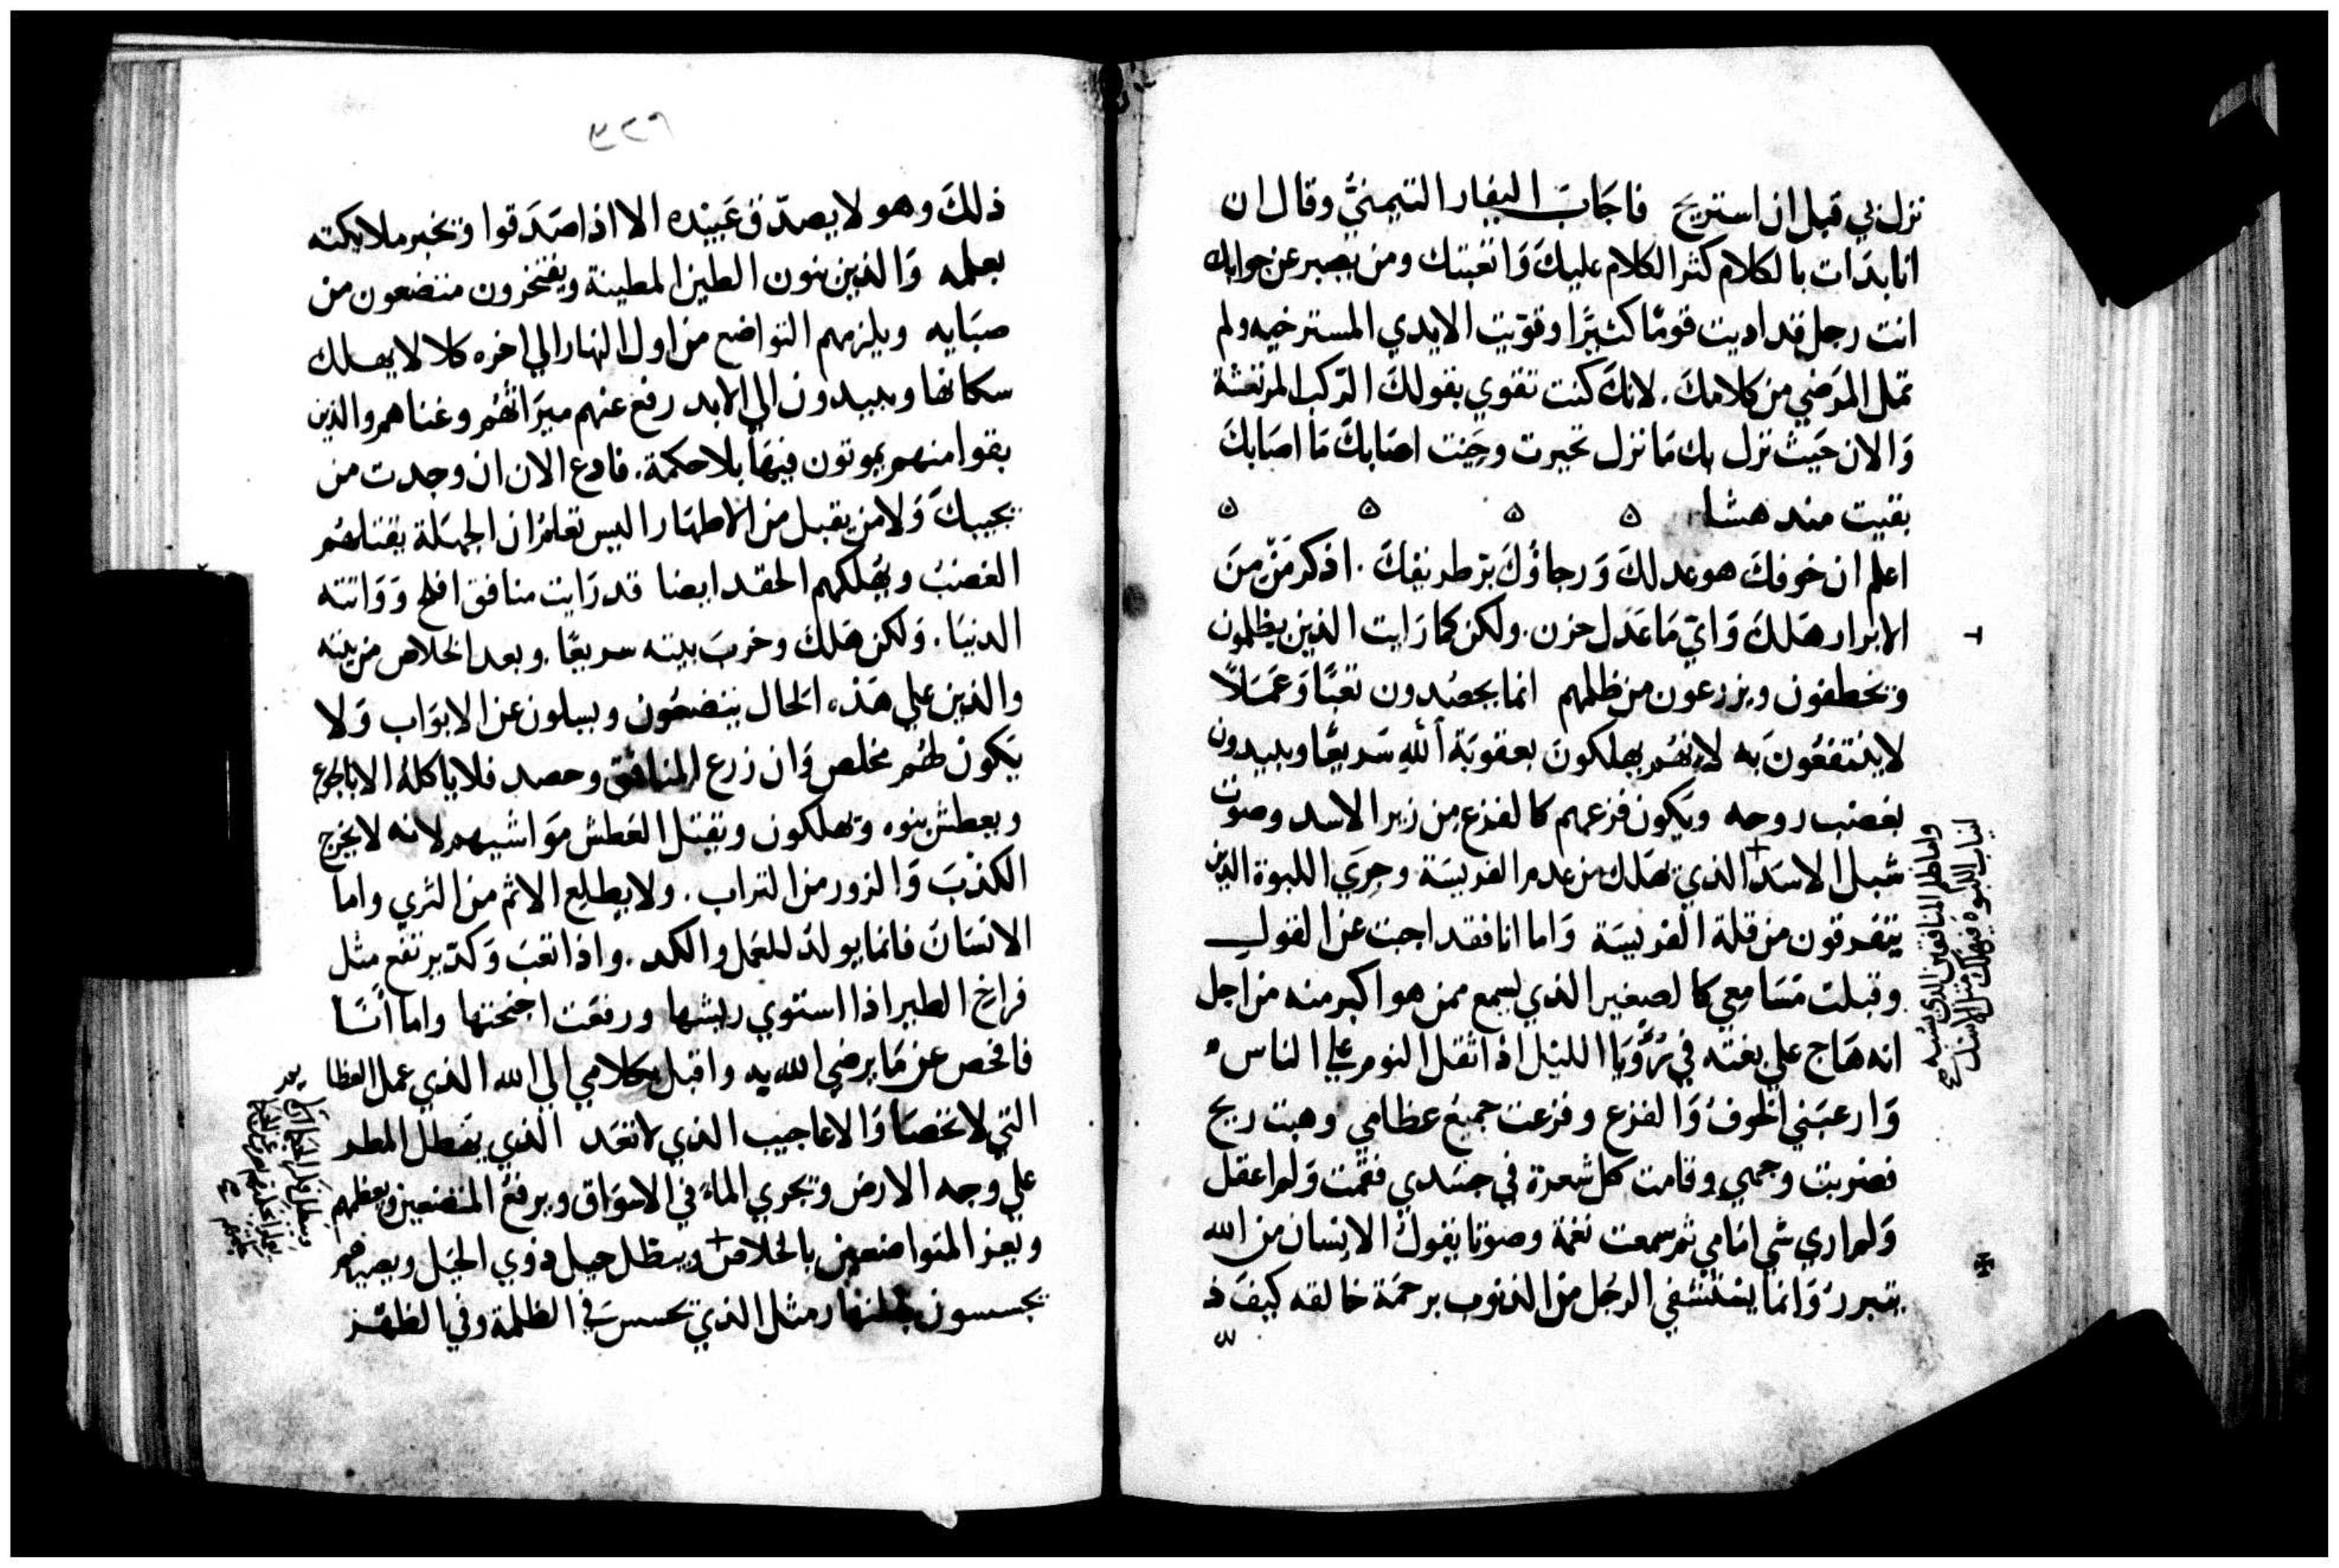 نزل بي قبل ان استريح فاجَابَ اليفار التيمنيُّ وقال ان
انا بدَات بالكلام كثر الكلام عليكَ وَاتعبتك ومن يصبر عن جوابك
انت رجل قد اديت قومًا كثيرًا وقوّيت الايدي المسترخيه ولم
تمل المرَضي من كلامكَ. لانكَ كنت تقوي بقولكَ الرّكب المرتعشة
وَالان حَيث نزل بك مَا نزل تحيرت وحَيْت اصَابكَ مَا اصَابكَ
بقيت مندهشا ه ه ه ه
اعلم ان خوفكَ هو عدلكَ وَرجاؤكَ برّ طريقكَ. اذكر مَنْ مِنَ
الابرار هَلكَ وَايّ مَا عَدَل حزن. ولكن كما رَايت الذين يظلمون
ويخطفون ويزرعون من ظلمهم انما يحصُدون تعبًا وَعَمَلاً
لا ينتفعُونَ به لانهُم يهلكون بعقوبَة اللهِ سَريعًا ويبيدون
بغضب روحه ويَكون فزعهم كالفزع مِن زير الاسد وصوت
شبل الاسَد الذي هَلك من عدم الفريسَة وجرَي اللبوة الذين
يتفرقون من قلة الفريسَة وَاما انا فقد اجبت عن القول
وقبلت مَسَامِعي كالصغير الذي يسمع ممن هو اكبر منه من اجل
انه هَاج علي بغته في رُؤْيَا الليْل اذا ثقل النوم علي الناس
وَارعبَني الخوفُ وَالفزع وفزعت جميع عظامي وهبت ريح
فضربت وجهي وقامت كل شعرة في جسَدي فقمت وَلم اعقل
وَلم اري شي امَامي ثم سمعت نغمة وصوتا يقولُ الانسان من الله
يتبرر وَانما يستشفي الرجُل من الذنوب برحمَة خالقه كيفَ ذ
واما ظلم المنافقين الذي يشبه
انياب اللبوه فيهلك مثل الاسد
٣٢٩
ذلكَ وهو لا يصدّق عَبيْده الا اذا صَدَقوا ويخبر ملايكته
بعلمه وَالذين بنون الطين المطينة ويفتخرون متضعون من
صبَايه ويلزمهم التواضع من اول النهار الي اخره كلا لا يهلك
سكانها ويبيدون الي الابد رفع عنهم ميرَاثهُم وغناهم والذين
بقوا منهم يموتون فيهَا بلا حكمة. فادع الان ان وجدت من
يجيبكَ وَلا من يقبل من الاطهَار اليس تعلمُ ان الجهَلة يقتلهُم
الغضبُ ويُهلكهم الحقد ايضا قد رَايت منافق افلح وَوَاتته
الدنيَا. وَلكن هَلكَ وخربَ بيته سريعًا. وبعد الخلاص من بيته
والذين علي هَذه الحَال يتضعُون ويسلون عن الابوَاب وَلا
يَكون لهُم مخلص وَان زرع المنافق وحصد فلا ياكلهُ الا بالجوع
ويعطش بنوه ويهلكون ويقتل العَطش موَاشيهم لانه لا يخرج
الكذبَ وَالزور من التراب. ولا يطلع الاثم من الثري واما
الانسَان فانما يولدُ للعمل والكد. واذا تعَبَ وَكدّ يرتفع مثل
فراخ الطير اذا استوي ريشها ورفعَت اجنحتها واما اَنَا
فافحص عن مَا يرضي الله به واقبل بكلامي الي الله الذي عمل العظا
التي لا تحصَا وَالاعاجيب الذي لا تعَد الذي يهَطل المطر
علي وجه الارض ويجري الماءَ في الاسوَاق ويرفعُ المتضعين ويعظمهم
ويعز المتواضعين بالخلاص ويبطل حيل ذوي الحِيَل ويصيرهم
يجسسون بالنهار مثل الذي يحسسَ في الظلمة وفي الظهر